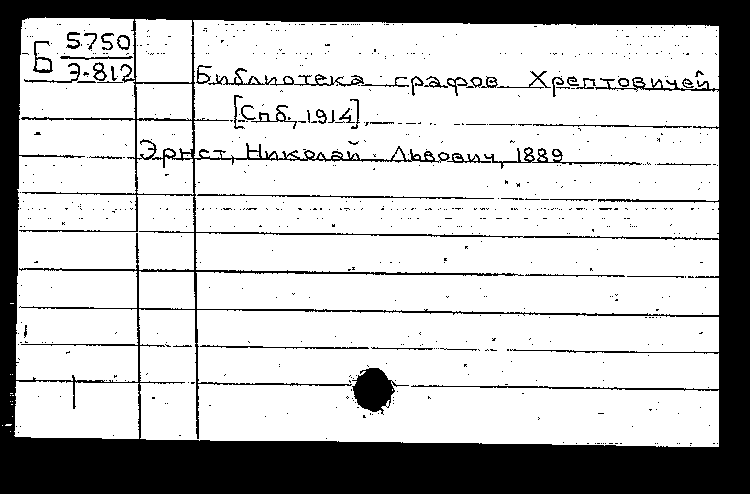 Б 5750
Э-812
Библиотека графов Хрептовичей
[Спб., 1914].
Эрнст, Николай Львович, 1889